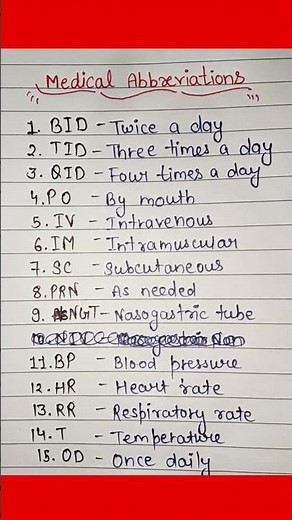 Medical Abbreviations
1. BID - Twice a day
2. TID - Three times a day
3. QID - Four times a day
4. PO - By mouth
5. IV - Intravenous
6. IM - Intramuscular
7. SC - Subcutaneous
8. PRN - As needed
9. NGT - Nasogastric tube
11. BP - Blood pressure
12. HR - Heart rate
13. RR - Respiratory rate
14. T - Temperature
15. OD - Once daily